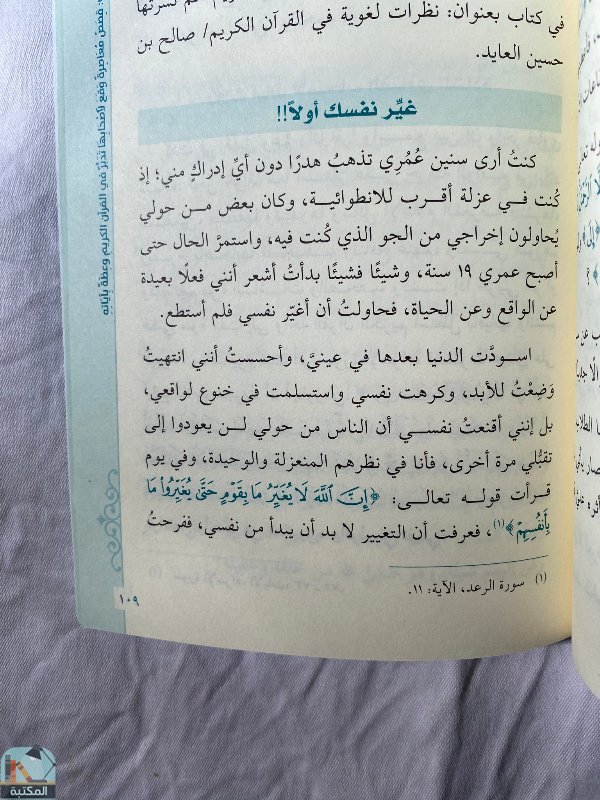 في كتاب بعنوان: نظرات لغوية في القرآن الكريم/ صالح بن
حسين العايد.
غيِّر نفسك أولاً!!
كنتُ أرى سنين عُمُري تذهبُ هدرًا دون أيِّ إدراكٍ مني؛ إذ
كُنت في عزلة أقرب للانطوائية، وكان بعض من حولي
يُحاولون إخراجي من الجو الذي كُنت فيه، واستمرَّ الحال حتى
أصبح عمري ١٩ سنة، وشيئًا فشيئًا بدأتُ أشعر أنني فعلًا بعيدة
عن الواقع وعن الحياة، فحاولتُ أن أغيّر نفسي فلم أستطع.
اسودَّت الدنيا بعدها في عينيَّ، وأحسستُ أنني انتهيتُ
وَضِعْتُ للأبد، وكرهت نفسي واستسلمت في خنوع لواقعي،
بل إنني أقنعتُ نفسي أن الناس من حولي لن يعودوا إلى
تقبُّلي مرة أخرى، فأنا في نظرهم المنعزلة والوحيدة، وفي يوم
قرأت قوله تعالى: ﴿إِنَّ ٱللَّهَ لَا يُغَيِّرُ مَا بِقَوْمٍ حَتَّىٰ يُغَيِّرُواْ مَا
بِأَنفُسِهِمْ﴾(١)، فعرفت أن التغيير لا بد أن يبدأ من نفسي، ففرحتُ
(١) سورة الرعد، الآية: ١١.
١٠٩
قصص معاصرة وقع لأصحابها تدبّر في القرآن الكريم وعظة بآياته
المكتبة